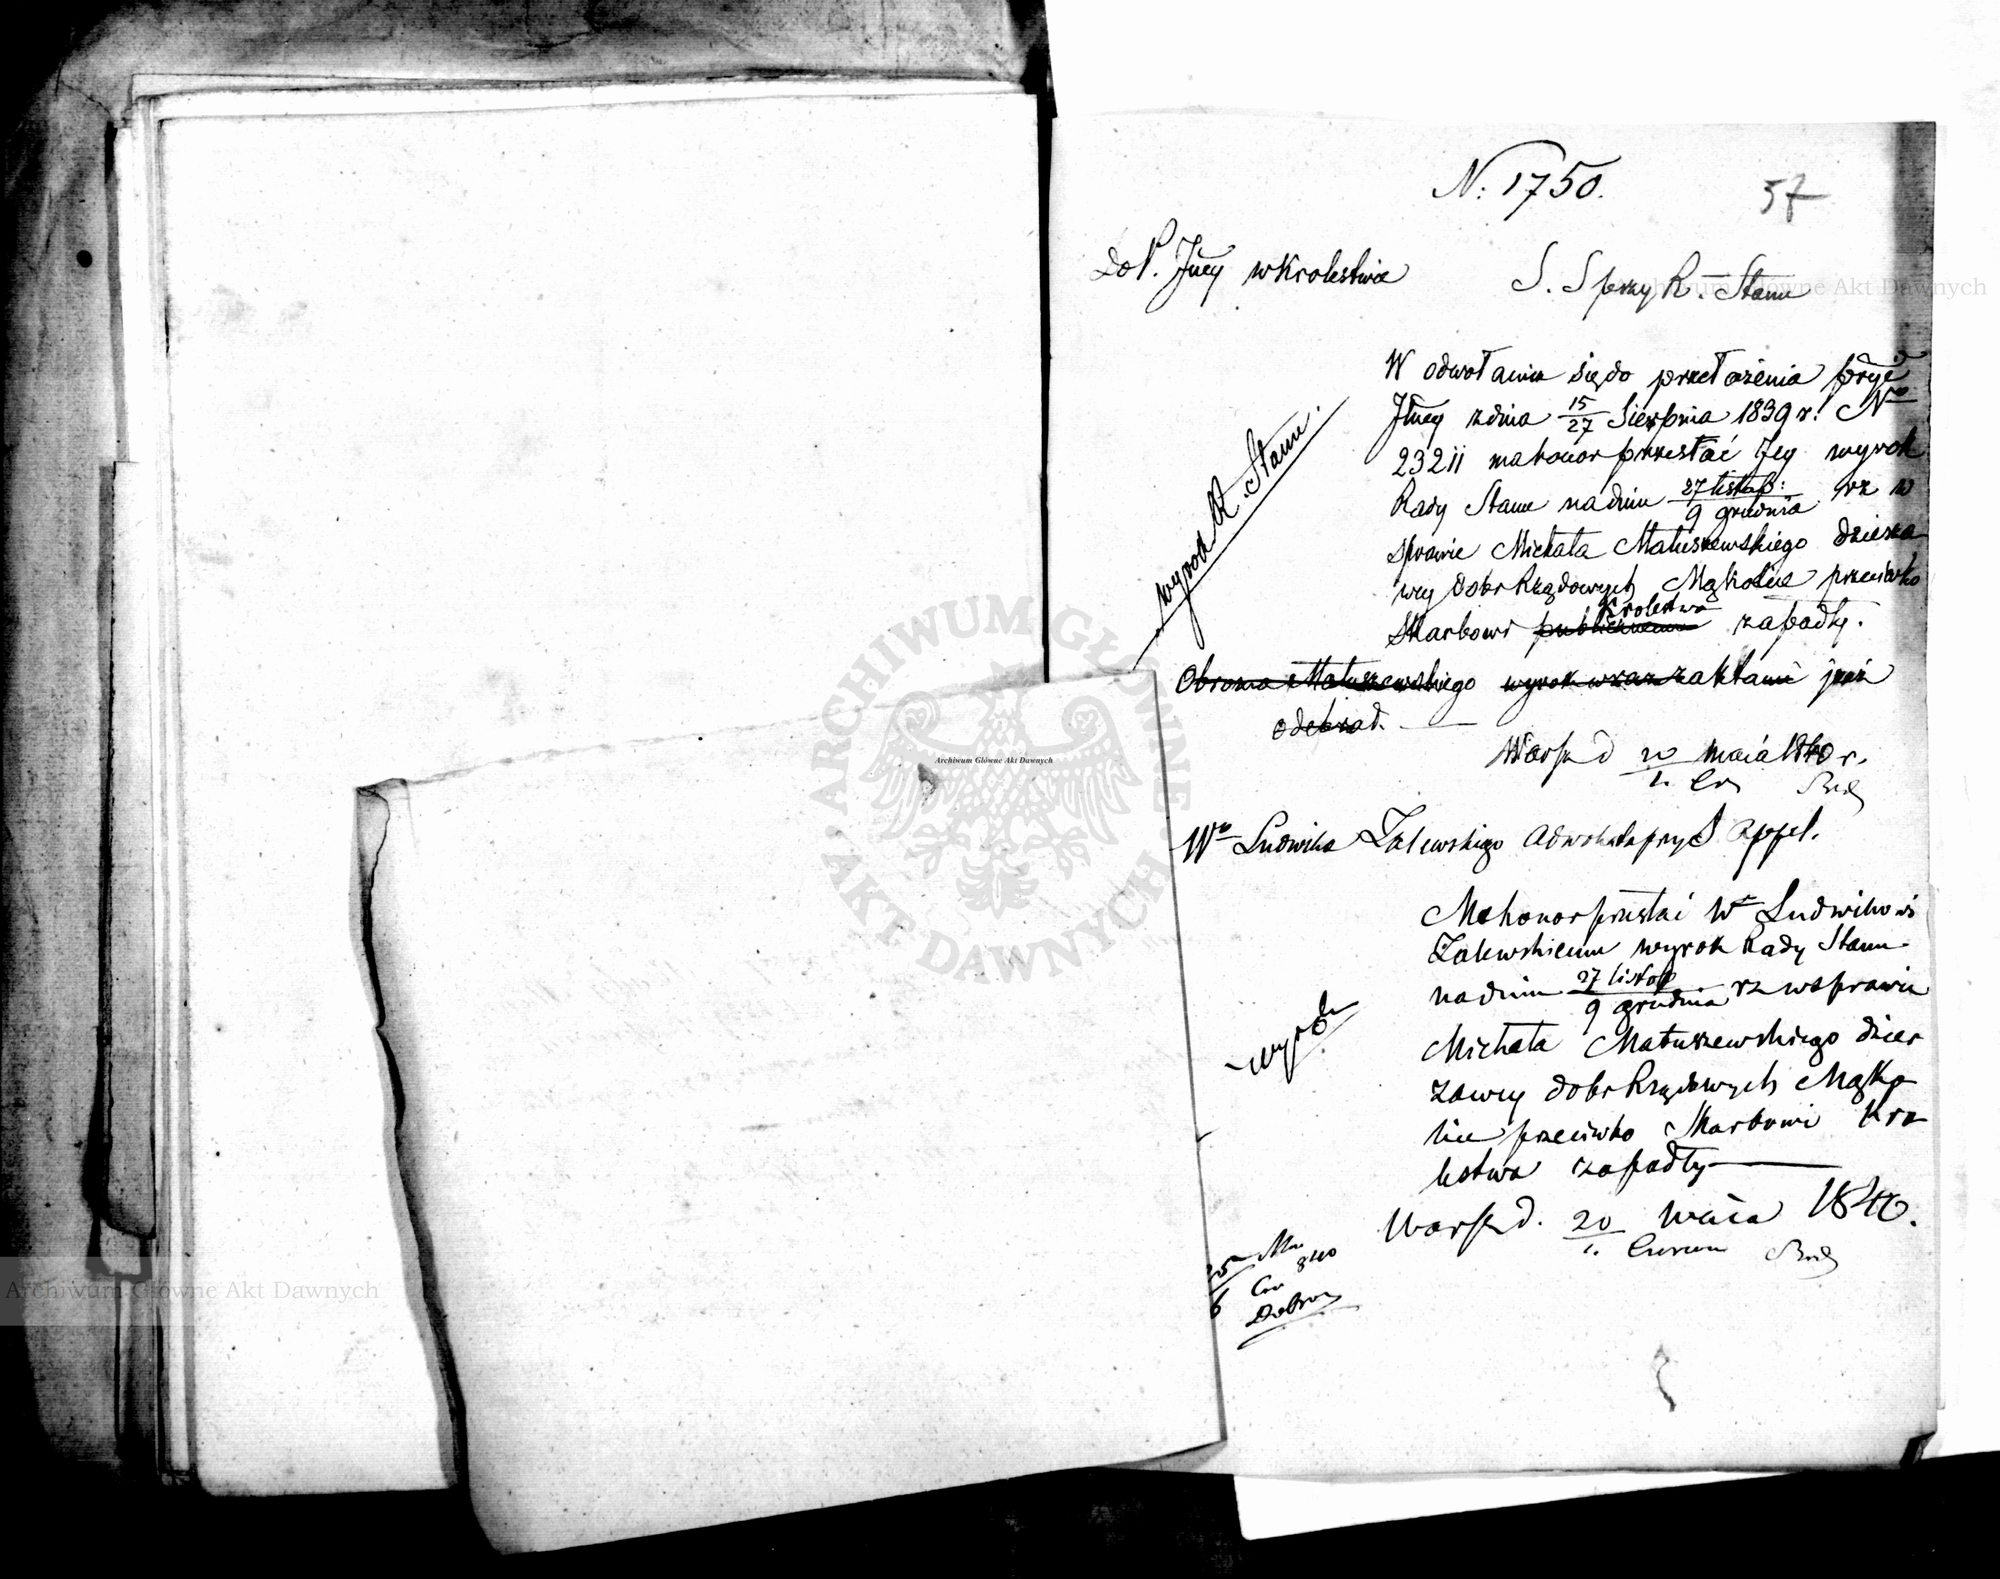 N: 1750.
57
Do P. Jlney w Krolestwie
S. S przy R. Stanu
W odwołaniu się do przełożenia
Jlney z dnia 15/27 Sierpnia 1839 r. No
23211 ma honor przesłać Jey wyrok
Rady Stanu na dniu 27 listop: / 9 grudnia rz w
sprawie Michała Matuszewskiego dzierża
wcy dobr Rządowych Mąkolice przeciwko
Krolestwa
Skarbowi publicznemu zapadły.
wyrok R. Stanu.
Obrona Matuszewskiego wyrok wraz z aktami już
odebrał.
Warsz d 20 maia 1840 r.
1. Cz
Wo Ludwika Zalewskiego Adwokata przy S Appel.
Ma honor przesłać Wu Ludwikowi
Zalewskiemu wyrok Rady Stanu
na dniu 27 listop / 9 grudnia rz w sprawie
Michała Matuszewskiego dzier
zawcy dobr Rządowych Mąko
lice przeciwko Skarbowi Kro
lestwa zapadły
wyrok
Warsz d. 20 maia 1840.
1. Czerwca
25 Ma 840
6 Cz
Archiwum Główne Akt Dawnych
Archiwum Główne Akt Dawnych
Archiwum Główne Akt Dawnych
ARCHIWUM GŁÓWNE AKT DAWNYCH